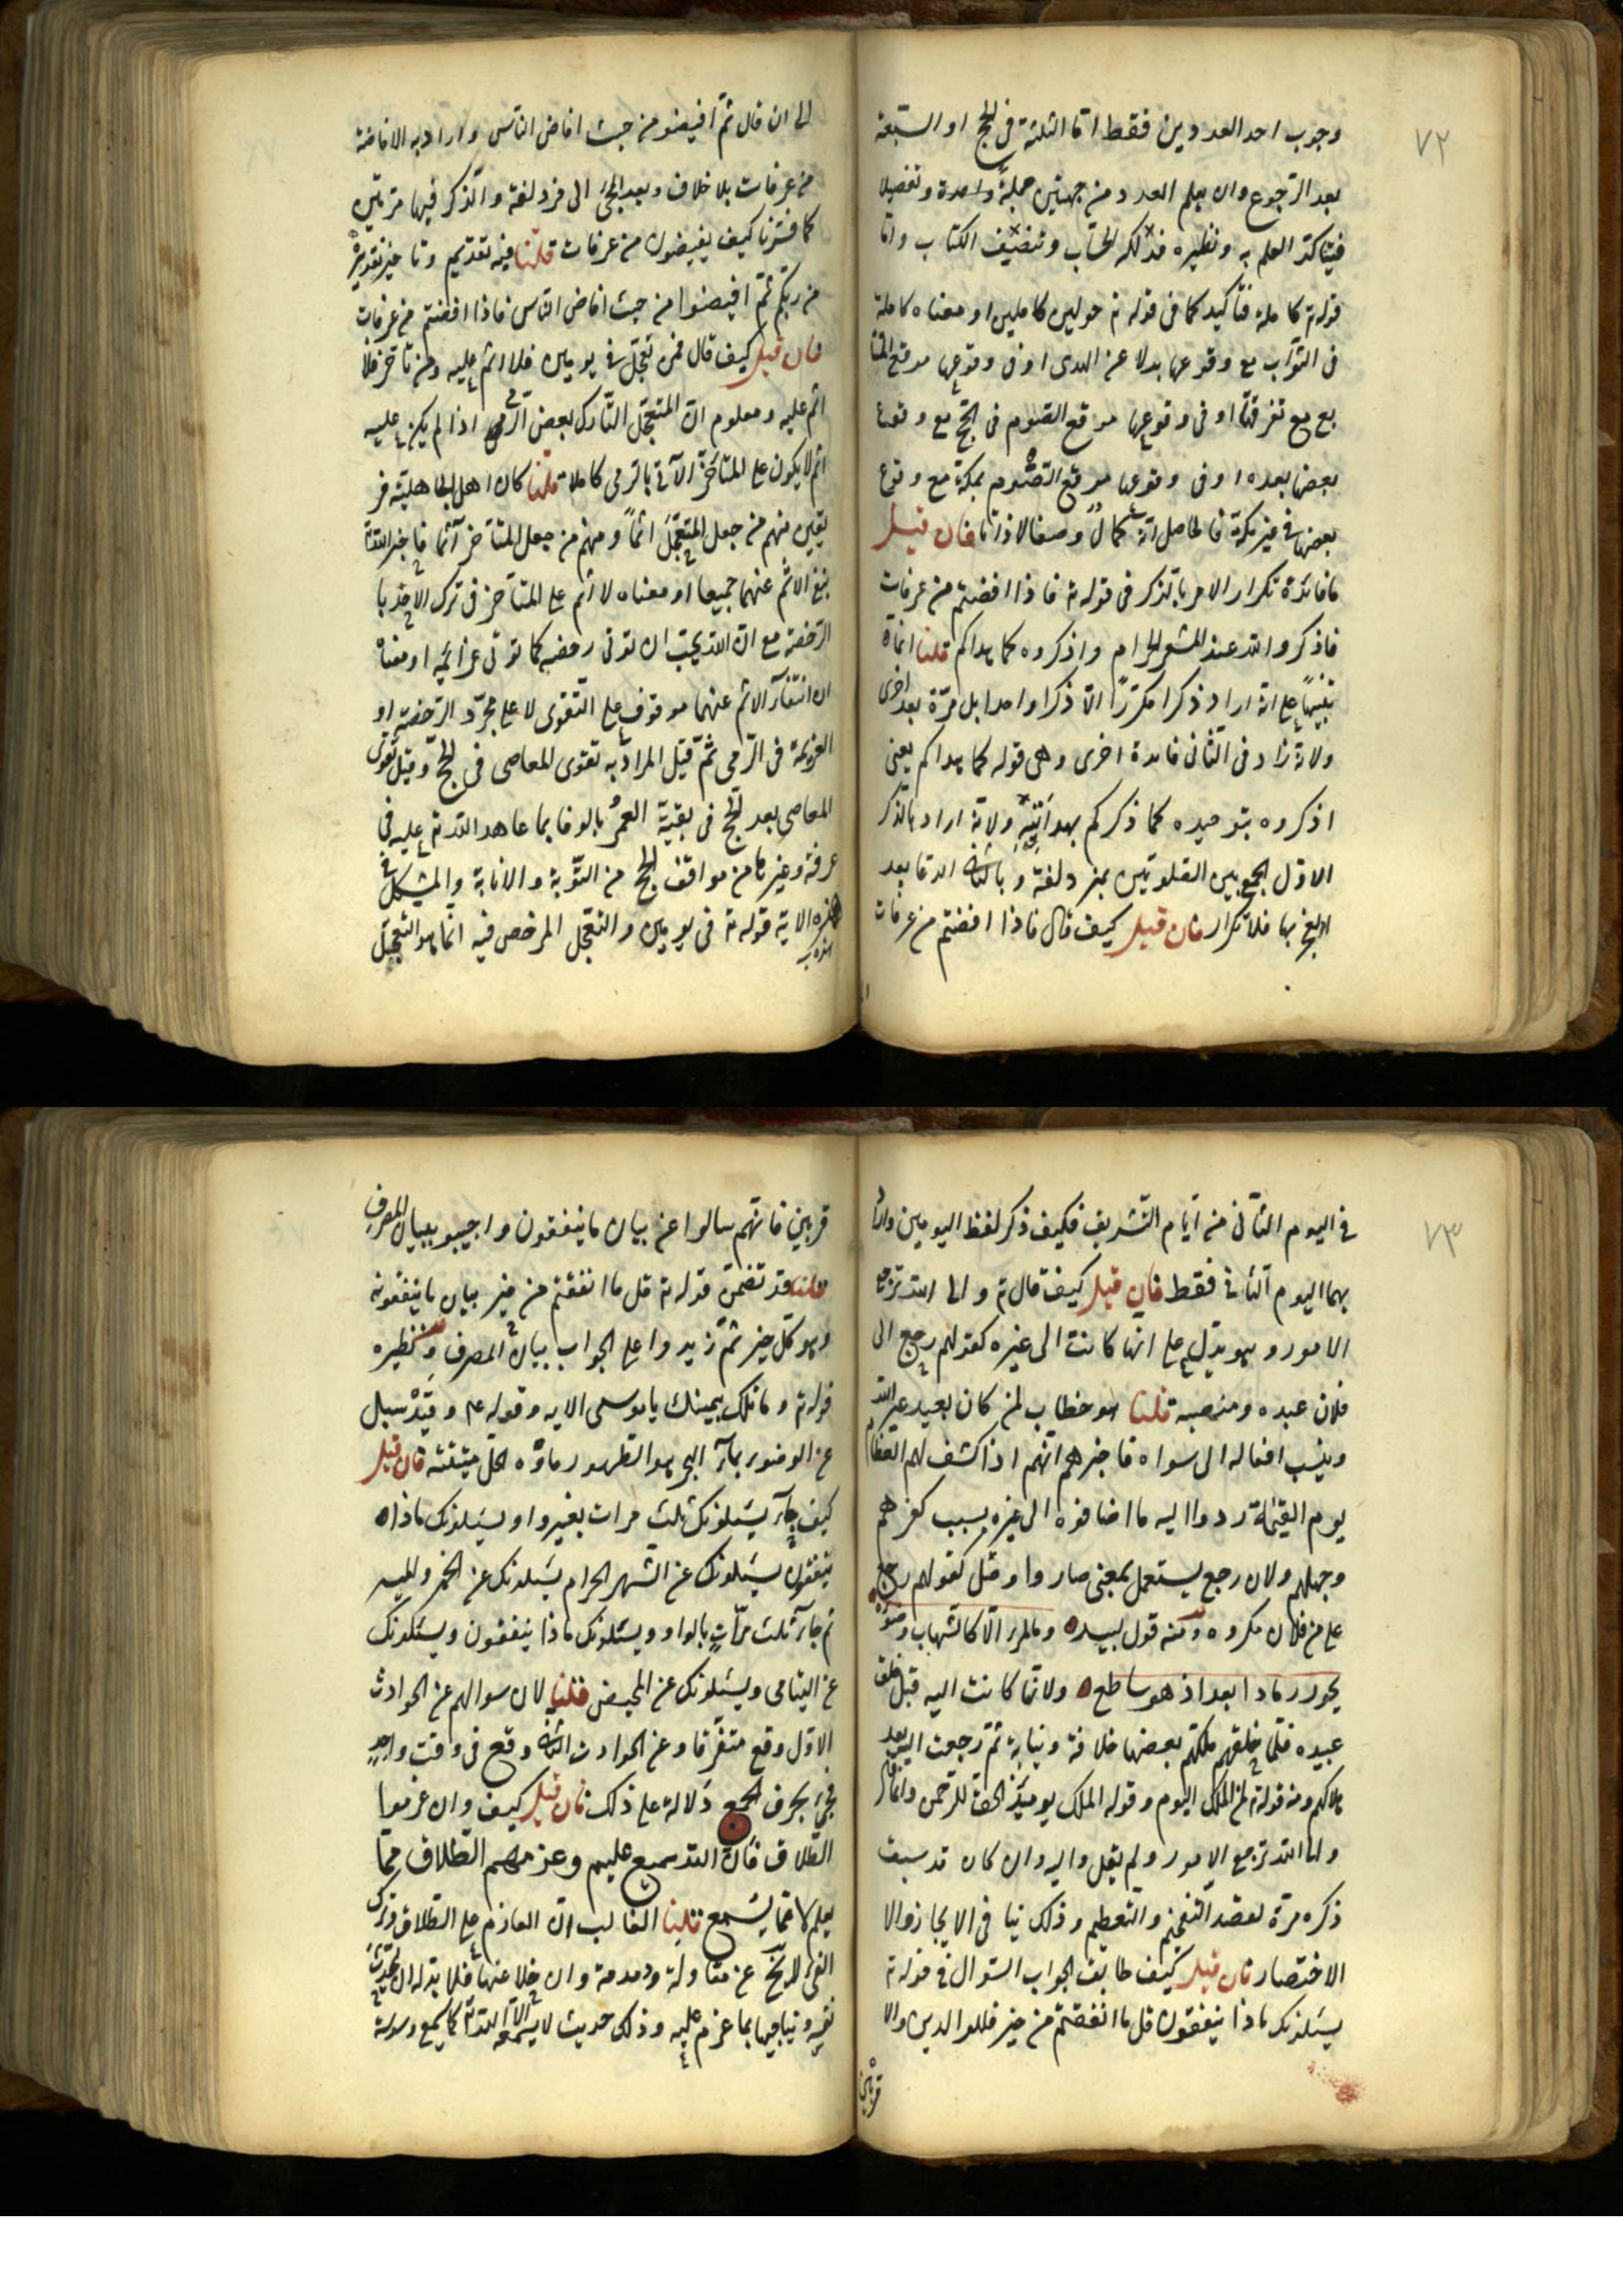 ٧٢
وجوب احد العددين فقط اما الثلثة في الحج او السبعة
بعد الرجوع وان يعلم العدد من جهتين جملة واحدة وتفصيلا
فيتاكد العلم به ونظيره فذلكه الحساب وتنضيف الكتاب واما
قوله ته كاملة فتأكيد كما في قوله ته حولين كاملين او معناه كاملة
في الثواب مع وقوعها بدلا عن الهدى او في وقوعها موقع المتتا
بع مع تفرقتها او في وقوعها موقع الصوم في الحج مع وقوع
بعضها بعده او في وقوعها موقع الصوم بمكة مع وقوع
بعضها في غير مكة فالحاصل انه كمال وصفا لا ذاتا فان قيل
ما فائدة تكرار الامر بالذكر في قوله ته فاذا افضتم من عرفات
فاذكروا الله عند المشعر الحرام واذكروه كما هداكم قلنا انما
تنبيها على انه اراد ذكرا مكررا لا ذكرا واحدا بل مرة بعد اخرى
ولانه زاد في الثاني فائدة اخرى وهي قوله كما هداكم يعني
اذكروه بتوحيده كما ذكركم بهدايته ولانه اراد بالذكر
الاول الجمع بين الصلوتين بمزدلفة وبالثاني الدعا بعد
الفجر بها فلا تكرار فان قيل كيف قال فاذا افضتم من عرفات
الى ان قال ثم افيضوا من حيث افاض الناس واراد به الافاضة
من عرفات بلا خلاف وبعد المجئ الى مزدلفة والذكر فيها مرتين
كما فسرنا كيف يفيضون من عرفات قلنا فيه تقديم وتاخير تقديره
من ربكم ثم افيضوا من حيث افاض الناس فاذا افضتم من عرفات
فان قيل كيف قال فمن تعجل في يومين فلا اثم عليه ومن تاخر فلا
اثم عليه ومعلوم ان المتعجل التارك بعض الرمى اذا لم يكن عليه
اثم لا يكون على المتاخر الآتي بالرمى كاملا قلنا كان اهل الجاهلية فر
يقين منهم من جعل المتعجل اثما ومنهم من جعل المتأخر آثما فاخبر الله ته
بنفي الاثم عنهما جميعا او معناه لا اثم على المتأخر في ترك الاخذ با
الرخصة مع ان الله يحب ان تؤتى رخصه كما تؤتى عزائمه او معناه
ان انتفاء الاثم عنهما موقوف على التقوى لا على مجرد الرخصة او
العزيمة في الرمى ثم قيل المراد به تقوى المعاصى في الحج وقيل تقوى
المعاصي بعد الحج في بقية العمر بالوفا بما عاهد الله ته عليه في
عرفة وغيرها من مواقف الحج من التوبة والانابة والمشكل في
هذه الاية قوله ته في يومين والتعجل المرخص فيه انما هو التعجيل
٧٣
في اليوم الثاني من ايام التشريف فكيف ذكر لفظ اليومين واراد
بهما اليوم الثاني فقط فان قيل كيف قال ته والى الله ترجع
الامور وهو يدل على انها كانت الى غيره كقولهم رجع الى
فلان عبده ومنصبه قلنا هو خطاب لمن كان يعبد غير الله
وينسب افعاله الى سواه فاخبرهم انهم اذا كشف لهم الغطاء
يوم القيمة ردوا اليه ما اضافوه الى غيره بسبب كفرهم
وجهلهم ولان رجع يستعمل بمعنى صار واوصل كقولهم رجع
على من فلان مكروه ومنه قول لبيد وما المرء الا كالشهاب وضوئه
يحور رمادا بعد اذ هو ساطع ولانها كانت اليه قبل خلق
عبيده فلما خلقهم ملكهم بعضها خلافة ونيابة ثم رجعت اليه بعد
هلاكهم ومنه قوله ته لمن الملك اليوم وقوله الملك يومئذ الحق للرحمن وانما قال
والى الله ترجع الامور ولم يقل واليه وان كان قد سبق
ذكره مرة لقصد التفخيم والتعظيم وذلك ينا في الايجاز والا
الاختصار فان قيل كيف طابق الجواب السوال في قوله ته
يسئلونك ماذا ينفقون قل ما انفقتم من خير فللوالدين والا
قربين
قربين فانهم سالوا عن بيان ما ينفقون واجيبو ببيان المصرف
قلنا قد تضمن قوله ته قل ما انفقتم من خير بيان ما ينفقونه
وهو كل خير ثم زيدوا على الجواب بيان المصرف ونظيره
قوله ته وما تلك بيمينك يا موسى الايه وقوله عم وقد سئل
عن الوضوء بماء البحر هو الطهور ماؤه الحل ميتته فان قيل
كيف جاء يسئلونك ثلث مرات بغير واو يسئلونك ماذا
ينفقون يسئلونك عن الشهر الحرام يسئلونك عن الخمر والميسر
ثم جاء ثلث مرات بالواو ويسئلونك ماذا ينفقون ويسئلونك
عن اليتامى ويسئلونك عن المحيض قلنا لان سوالهم عن الحوادث
الاول وقع متفرقا وعن الحوادث الثاني وقع في وقت واحد
فجئ بحرف الجمع دلالة على ذلك فان قيل كيف وان عزموا
الطلاق فان الله سميع عليم وعزمهم الطلاق مما
يعلم لا مما يسمع قلنا الغالب ان العازم على الطلاق وترك
الفئ لا يخ عن مقاولة ودمدمة وان خلا عنها فلا بد له ان يحدث
نفسه ويناجيها بما عزم عليه وذلك حديث لا يسمعه الا الله ته كما يسمع وسوسة